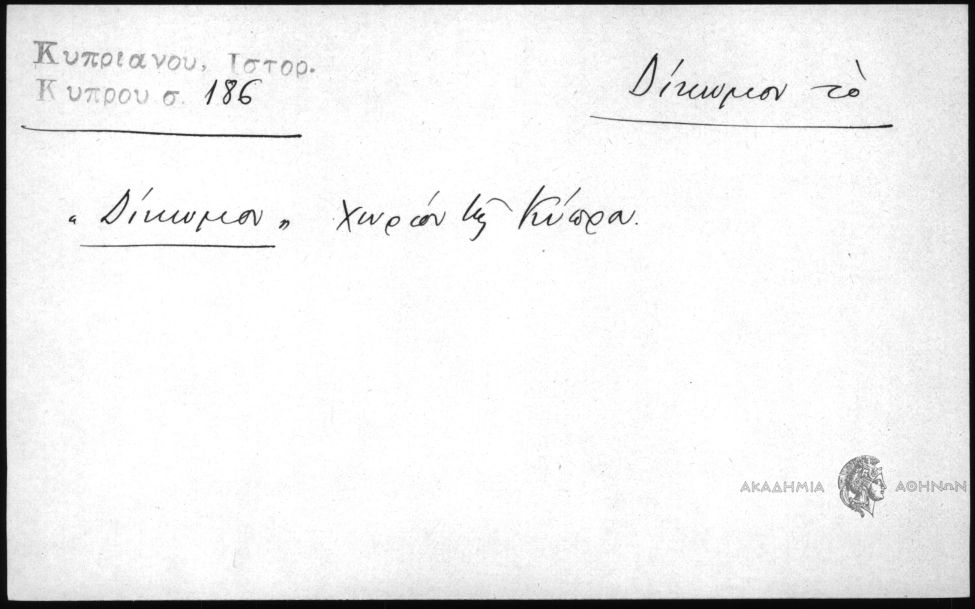 Κυπριανου, Ιστορ.
Κυπρου σ. 186
Δίκωμον τὸ
"Δίκωμον" χωρίον τῆς Κύπρου.
ΑΚΑΔΗΜΙΑ ΑΘΗΝΩΝ